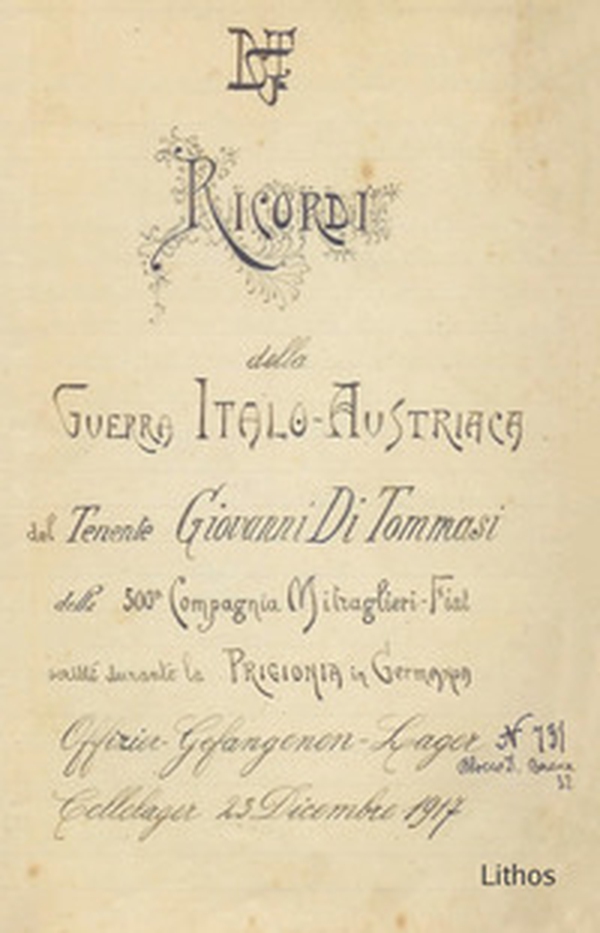 RICORDI
della
GUERRA ITALO-AUSTRIACA
del Tenente Giovanni Di Tommasi
della 500ª Compagnia Mitraglieri-Fiat
scritti durante la PRIGIONIA in Germania
Offizier-Gefangenen-Lager N 731
Blocco
Cellelager 23 Dicembre 1917
Lithos